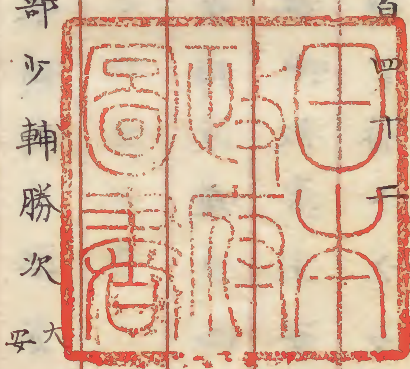 百四十
日本
政府
圖書
部少輔勝次
大
安